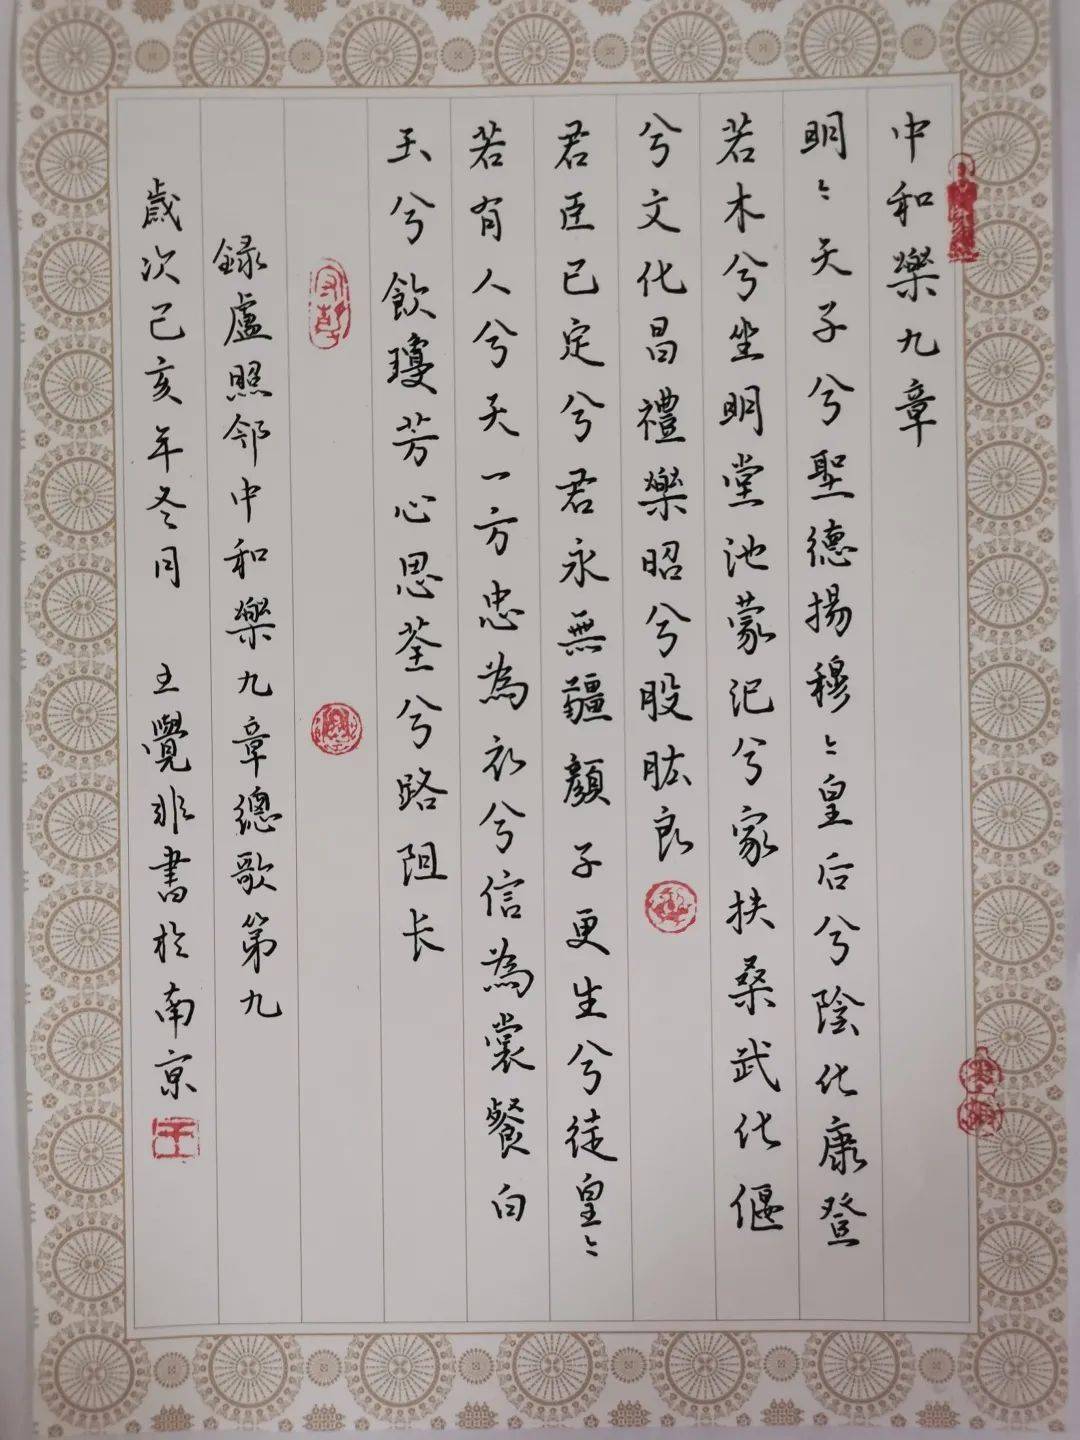 中和樂九章
明〻天子兮聖德揚穆〻皇后兮陰化康登
若木兮坐明堂池蒙汜兮家扶桑武化偃
兮文化昌禮樂昭兮股肱良
君臣已定兮君永無疆顏子更生兮徒皇〻
若有人兮天一方忠為衣兮信為裳餐白
玉兮飲瓊芳心思荃兮路阻长
錄盧照邻中和樂九章總歌第九
歲次己亥年冬月 王覺非書於南京